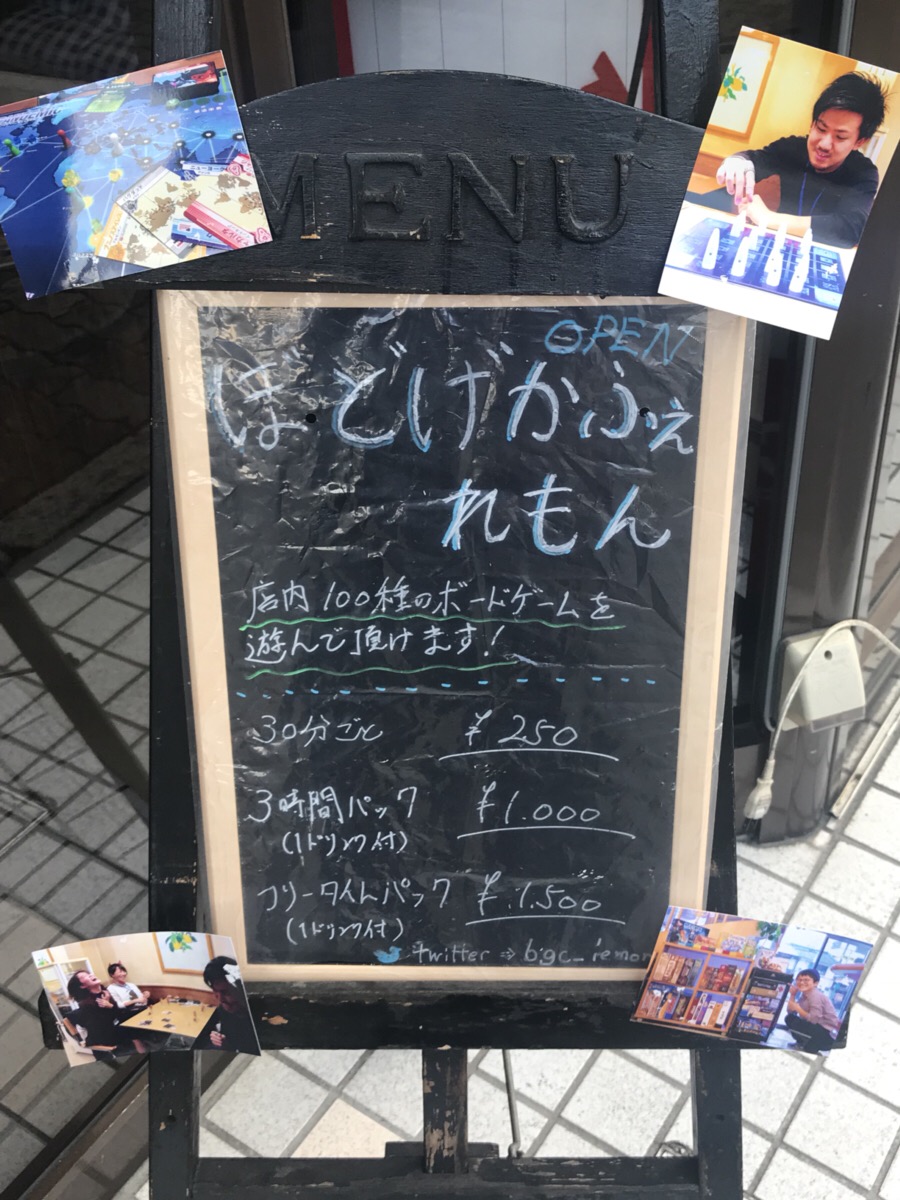 MENU
OPEN
ぼどげかふぇ
れもん
店内100種のボードゲームを
遊んで頂けます!
30分ごと ¥250
3時間パック ¥1.000
(1ドリンク付)
フリータイムパック ¥1.500
(1ドリンク付)
twitter ⇒